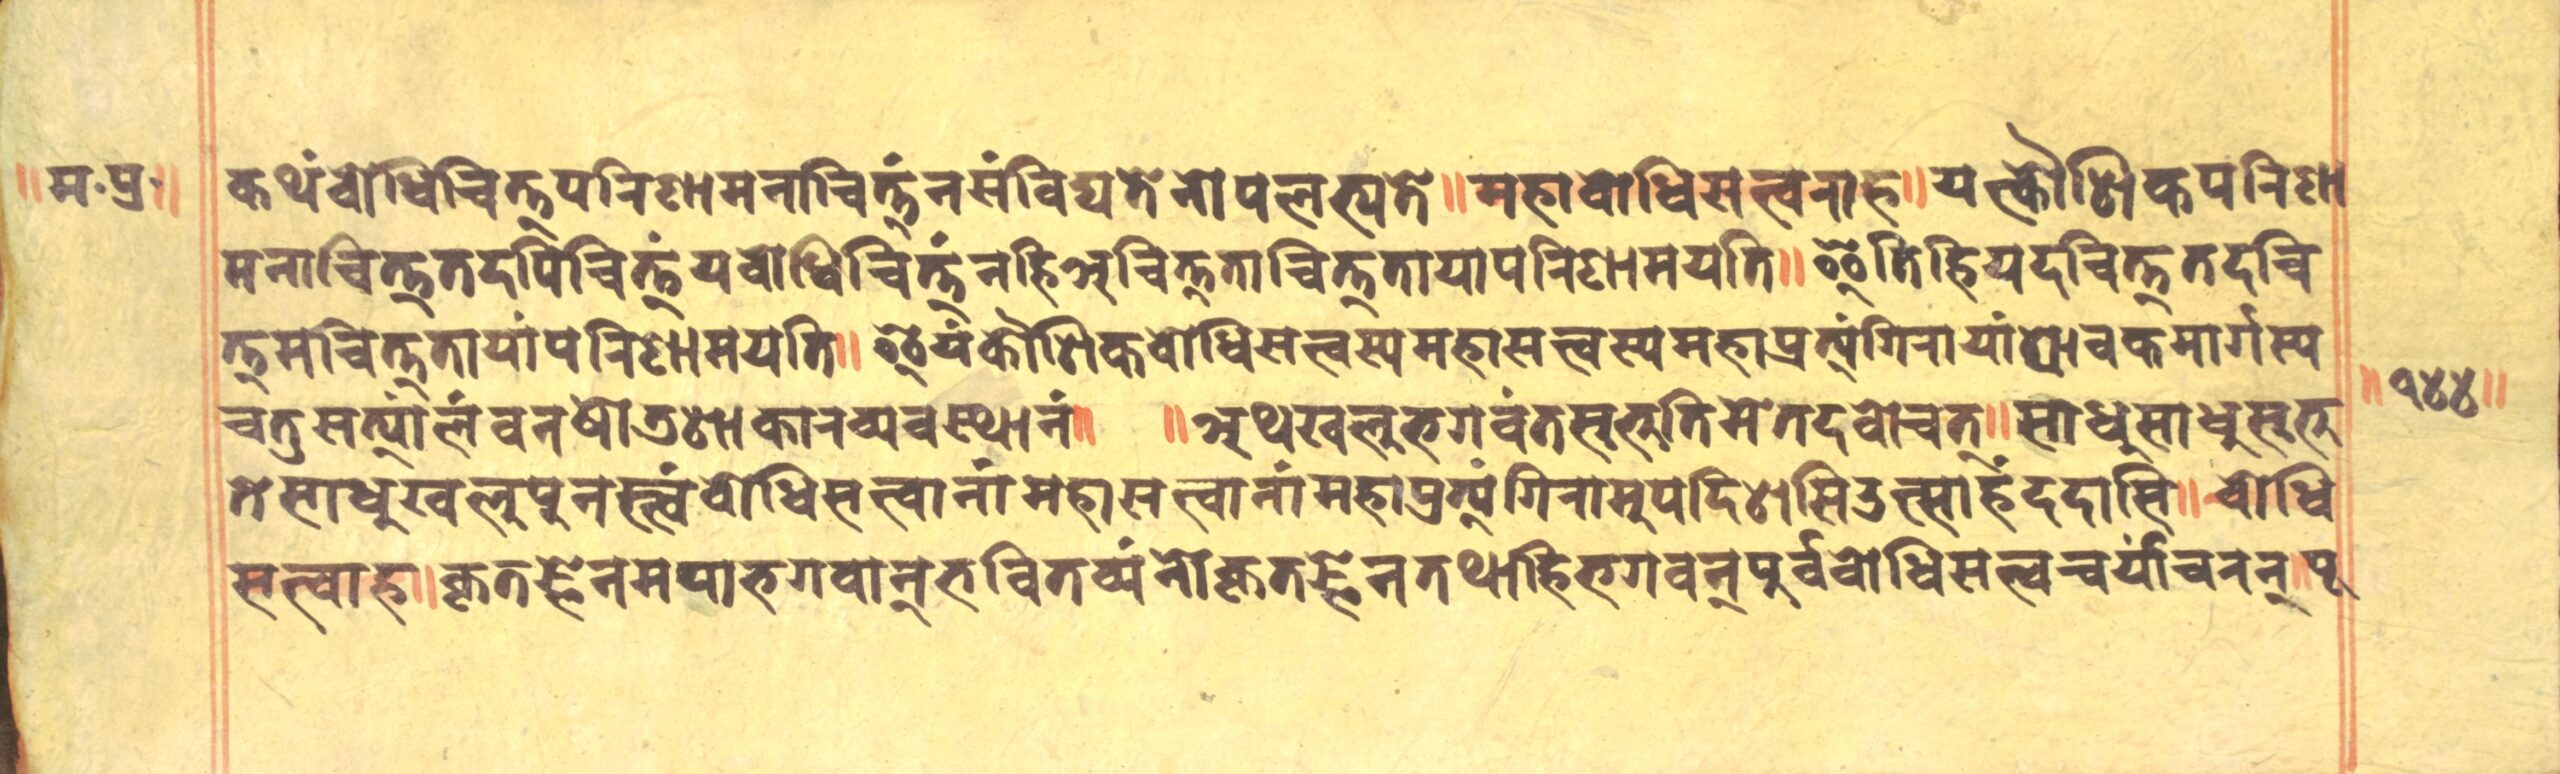 ॥म॰प्र॰॥
कथंवोधिचित्तपरिणामनाचित्तंनसंविद्यतेनोपलभ्यते॥महावोधिसत्त्वराह॥यत्कौशिकपरिणा
मनाचित्ततदपिचित्तंयवोधिचित्तंनहिअचित्तताचित्ततायापरिणामयति॥इतिहियदचित्ततदचि
त्तमचित्ततायांपरिणामयति॥इयंकौशिकवोधिसत्त्वस्यमहासत्त्वस्यमहाप्रत्यंगिरायांश्रावकमार्गस्य
चतुसत्यांलंवनषोडशाकारव्यवस्थानं॥ ॥अथखलुभगवंतसुभुतिमेतदवोचत्॥साधुसाधुसुभु
॥१४४॥
तेसाधुखलुपुनस्त्वंवोधिसत्त्वानांमहासत्त्वानांमहाप्रत्यंगिरामुपदिशसिउत्साहंददासि॥वोधि
सत्त्वाह॥कृतज्ञेनमयाभगवान्भवितव्यंनोकृतज्ञेनतथाहिभगवन्पुर्ववोधिसत्त्वचर्यांचरन्॥पू